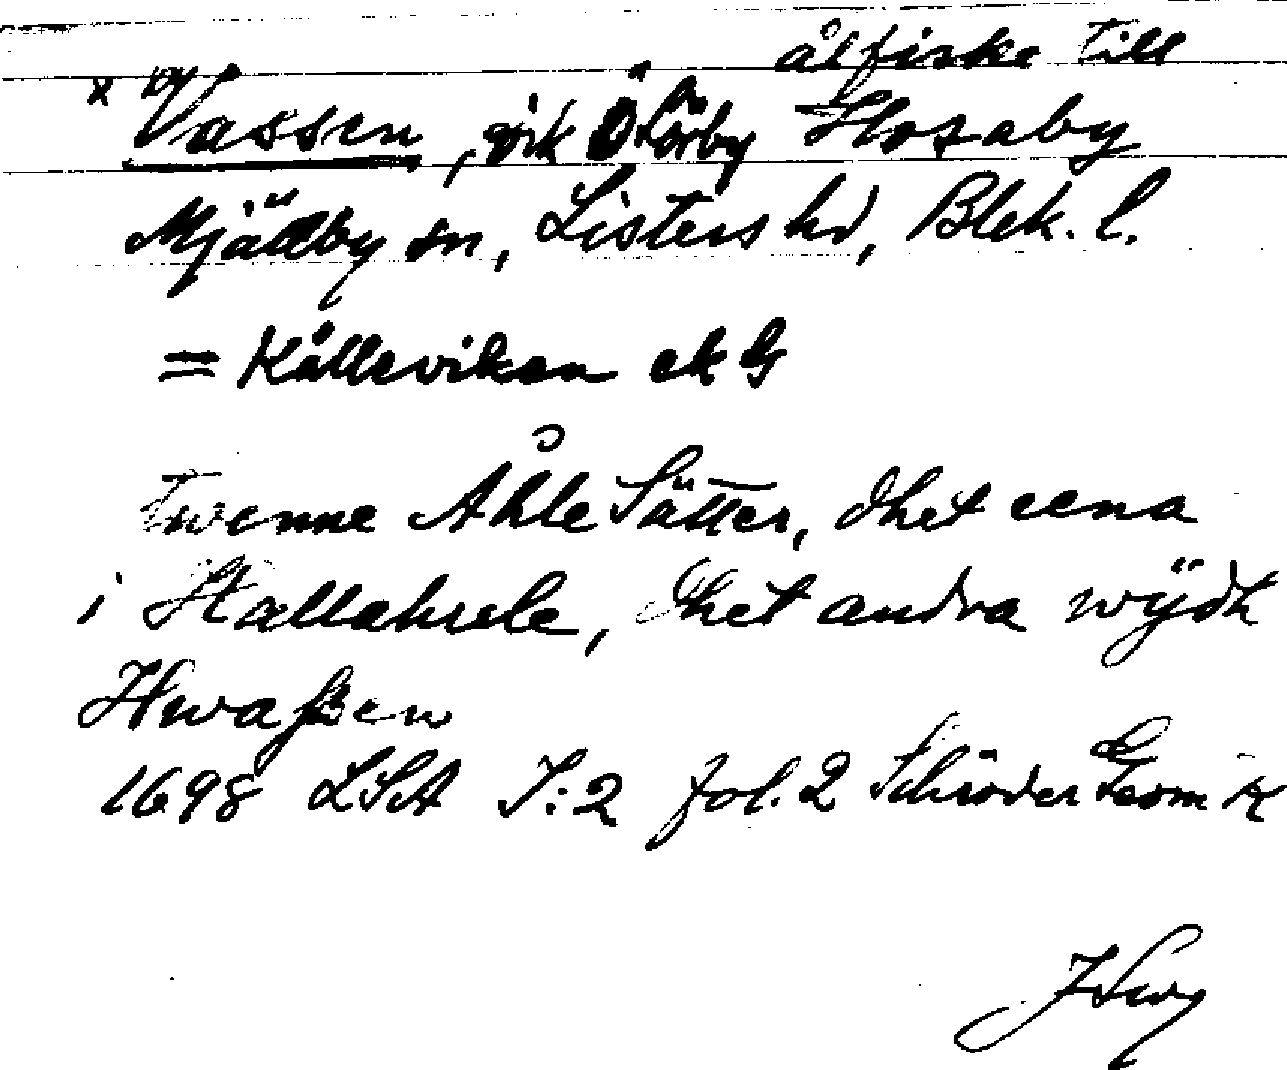 ålfiske till
x Vassen, vik Ö Lörby Hosaby
Mjällby sn, Listers hd, Blek. l.
= Källeviken ek G
Twenne Åhle Sätter, dhet eena
i Stallahsele, dhet andra wÿdh
Hwaßen
1698 LSA I:2 fol. 2 Schröder Geom K